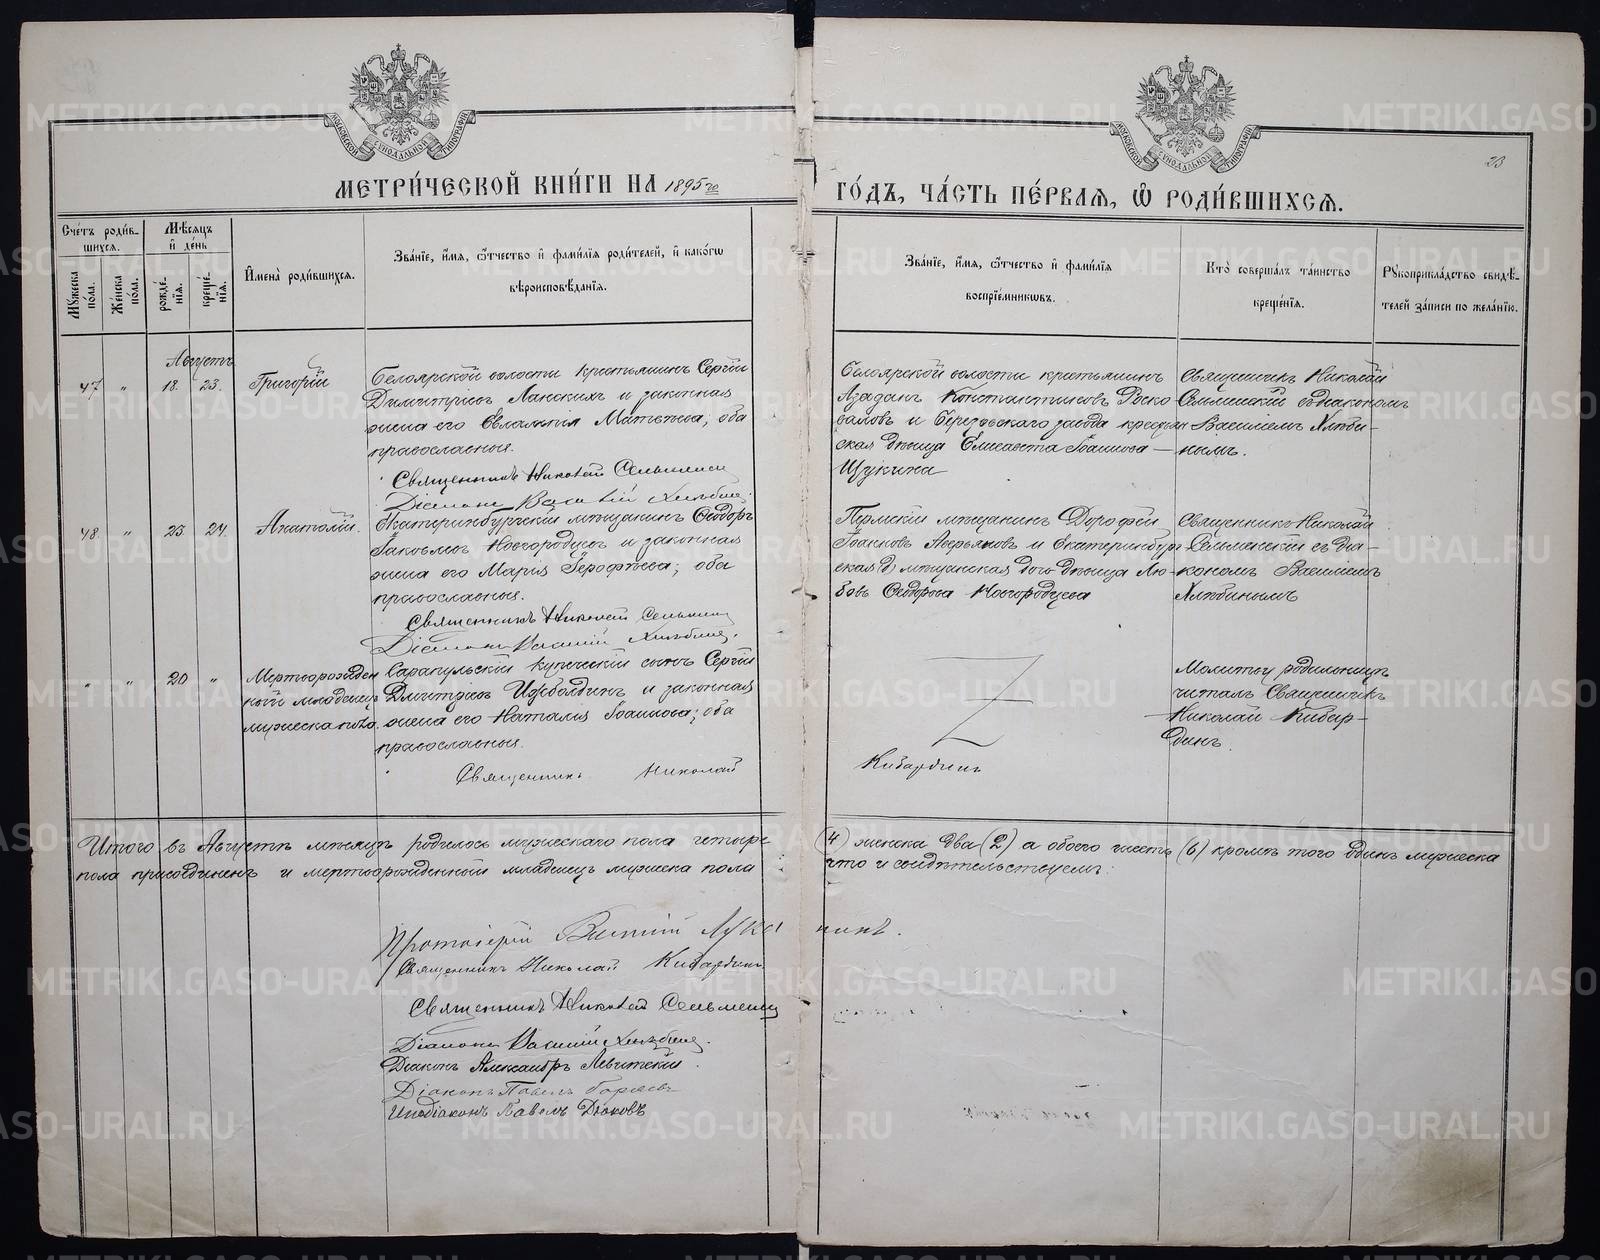 МЕТРИ́ЧЕСКОЙ КНИ́ГИ НА 1895го
ГО́ДЪ, ЧА́СТЬ ПЕ́РВАЯ, Ѽ РОДИ́ВШИХСЯ.
23
Сче́тъ роди́в-
шихся.
Мѣ́сяцъ
и҆ де́нь
Мꙋ́жеска по́ла.
Же́нска по́ла.
рожде́-
нїѧ.
креще́-
нїѧ.
И҆мена̀ роди́вшихся.
Зва́нїе, и҆́мѧ, ѻ҆́тчество и҆ фами́лїѧ роди́телей, и҆ како́гѡ
вѣроисповѣ́данїѧ.
Зва́нїе, и҆́мѧ, ѻ҆́тчество и҆ фами́лїѧ
воспрїе́мникѡвъ.
Кто̀ соверша́лъ та́инство
креще́нїѧ.
Рꙋкоприкла́дство свидѣ́-
телей за́писи по жела́нїю.
Августъ
47 " 18. 23. Григорій
Белоярской волости крестьянинъ Сергій
Димитріевъ Ланскихъ и законная
жена его Евлампія Матвѣева; оба
православные.
Священникъ Николай Сельменск
Діаконъ Василій Хлѣбин
Белоярской волости крестьянинъ
Константиновъ
и Березовскаго завода крестьян
ская дѣвица Елисавета Іоаннова —
Щукина
Священникъ Николай
Сельменскій съ діакономъ
Василіемъ Хлѣби-
нымъ.
48. " 23. 24. Анатолій.
Екатеринбургскій мѣщанинъ Ѳеодоръ
Іаковлевъ Новгородцевъ и законная
жена его Марія Іероѳѣева; оба
православные.
Священникъ Николай Сельменск
Діаконъ Василій Хлѣбин.
Пермскій мѣщанинъ Дороѳей
Іоанновъ Аверьяновъ и Екатеринбур
ская мѣщанская дочь дѣвица Лю-
бовь Ѳеодорова Новгородцева
Священникъ Николай
Сельменскій съ діа-
кономъ Василіемъ
Хлѣбинымъ
" " 20 "
Мертворожден
ный младенецъ
мужеска пола.
Сарапульскій купеческій сынъ Сергій
Дмитріевъ Ижболдинъ и законная
жена его Наталія Іоаннова; оба
православные.
Священникъ Николай
Кибардинъ
Молитву родильницѣ
читалъ Священникъ
Николай Кибар-
динъ.
Итого въ Августѣ мѣсяцѣ родилось мужескаго пола четыре
(4) женска два (2) а обоего шесть (6) кромѣ того одинъ мужеска
пола присоединенъ и мертворожденный младенецъ мужеска пола
что и свидѣтельствуемъ:
Протоіерей
Священникъ Николай Кибардинъ
Священникъ Николай Сельменск
Діаконъ Василій Хлѣбин.
Діаконъ Александръ Левитскій.
Діаконъ Павелъ
Иподіаконъ Павелъ Дьяковъ
METRIKI.GASO-URAL.RU